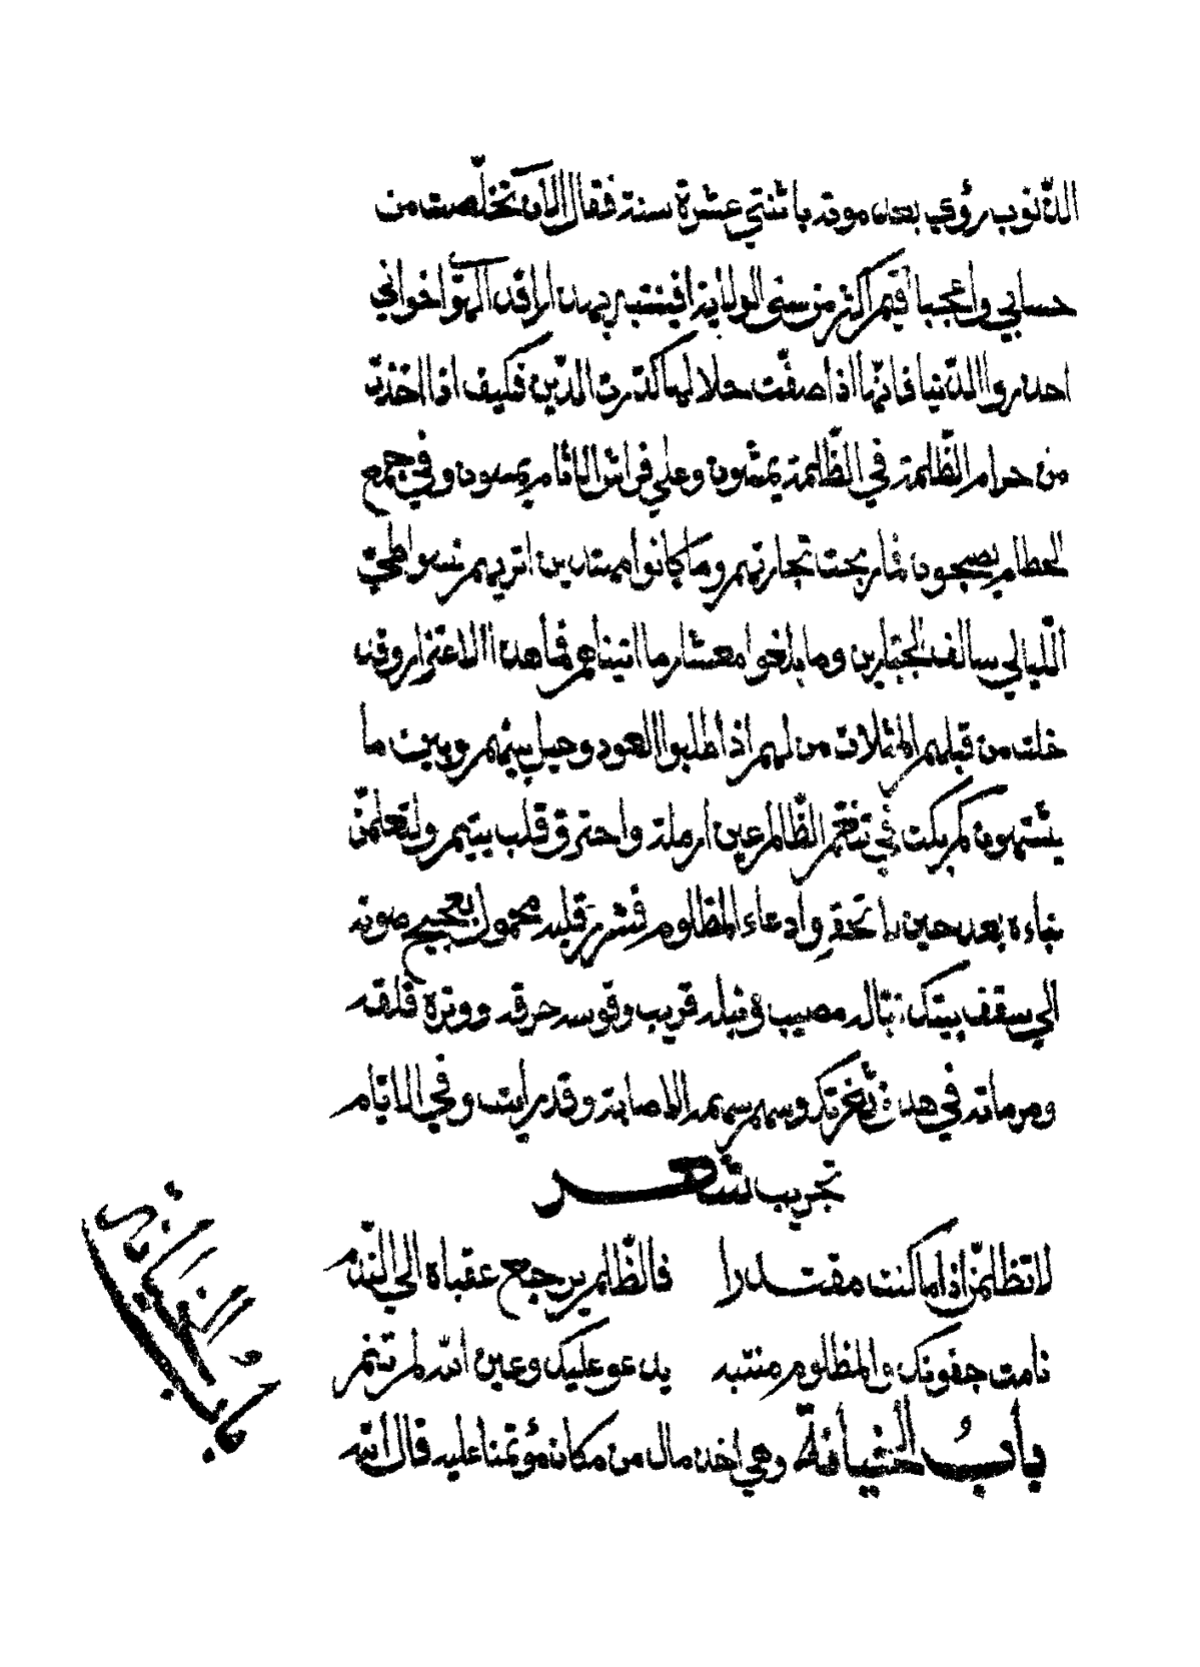 الذنوب رؤي بعد موته باثنتي عشرة سنة فقال الآن تخلّصت من
حسابي واعجبا اقيم اكثر من سني الولاية افينتبه بهذا الراقد المتهوا خواني
احذروا الدّنيا فانّها اذا صفّت حلالها كدّرت الدّين فكيف اذا اخذت
من حرام الظّلمة في الظّلمة يمشون وعلي فراش الاثام يمسون وفي جمع
الحطام يصبحون فما ربحت تجارتهم وما كانوا مهتدين اتريهم نسوا طيّ
اللّيالي سالف الجبّارين وما بلغوا معشار ما اتيناهم فما هذا الاغترار وقد
خلت من قبلهم المثلات من لهم اذا طلبوا العود وحيل بينهم وبين ما
يشتهون كم بكت في تنعّم الظّالم عين ارملة واحترق قلب يتيم ولتعلمنّ
نباءه بعد حين ما تحقروا دعاء المظلوم فشرر قلبه محمول بعجيج صوته
الي سقف بيتك نبّاله مصيب ونبله قريب وقوسه حرقه ووتره قلقه
ومرماته في هدف ثغرتك وسهم سهمه الاصابة وقد رايت وفي الايّام
تجريب شعر
لا تظلمنّ اذا ما كنت مقتدرا فالظّلم يرجع عقباه الي النّدم
نامت جفونك والمظلوم منتبه يدعو عليك وعين الله لم تنم
بابُ الخيانة وهي اخذ مال من مكان مؤتمنا عليه قال الله
باب الخيانة